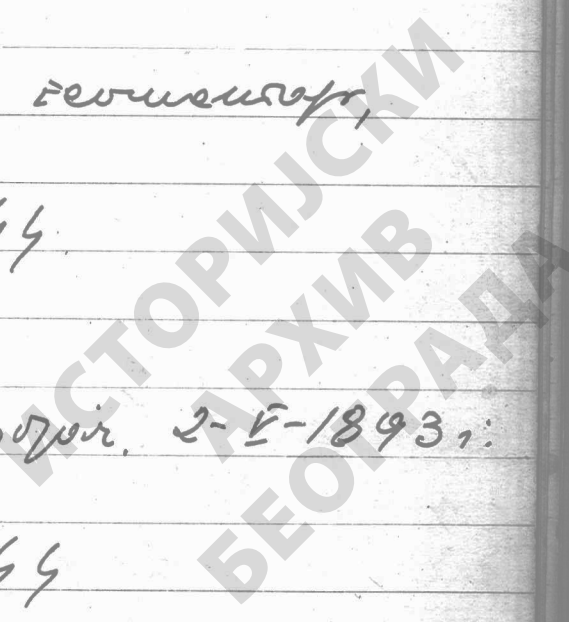 геометар,
44
2-V-1893 г:
44
ИСТОРИЈСКИ
АРХИВ
БЕОГРАДА